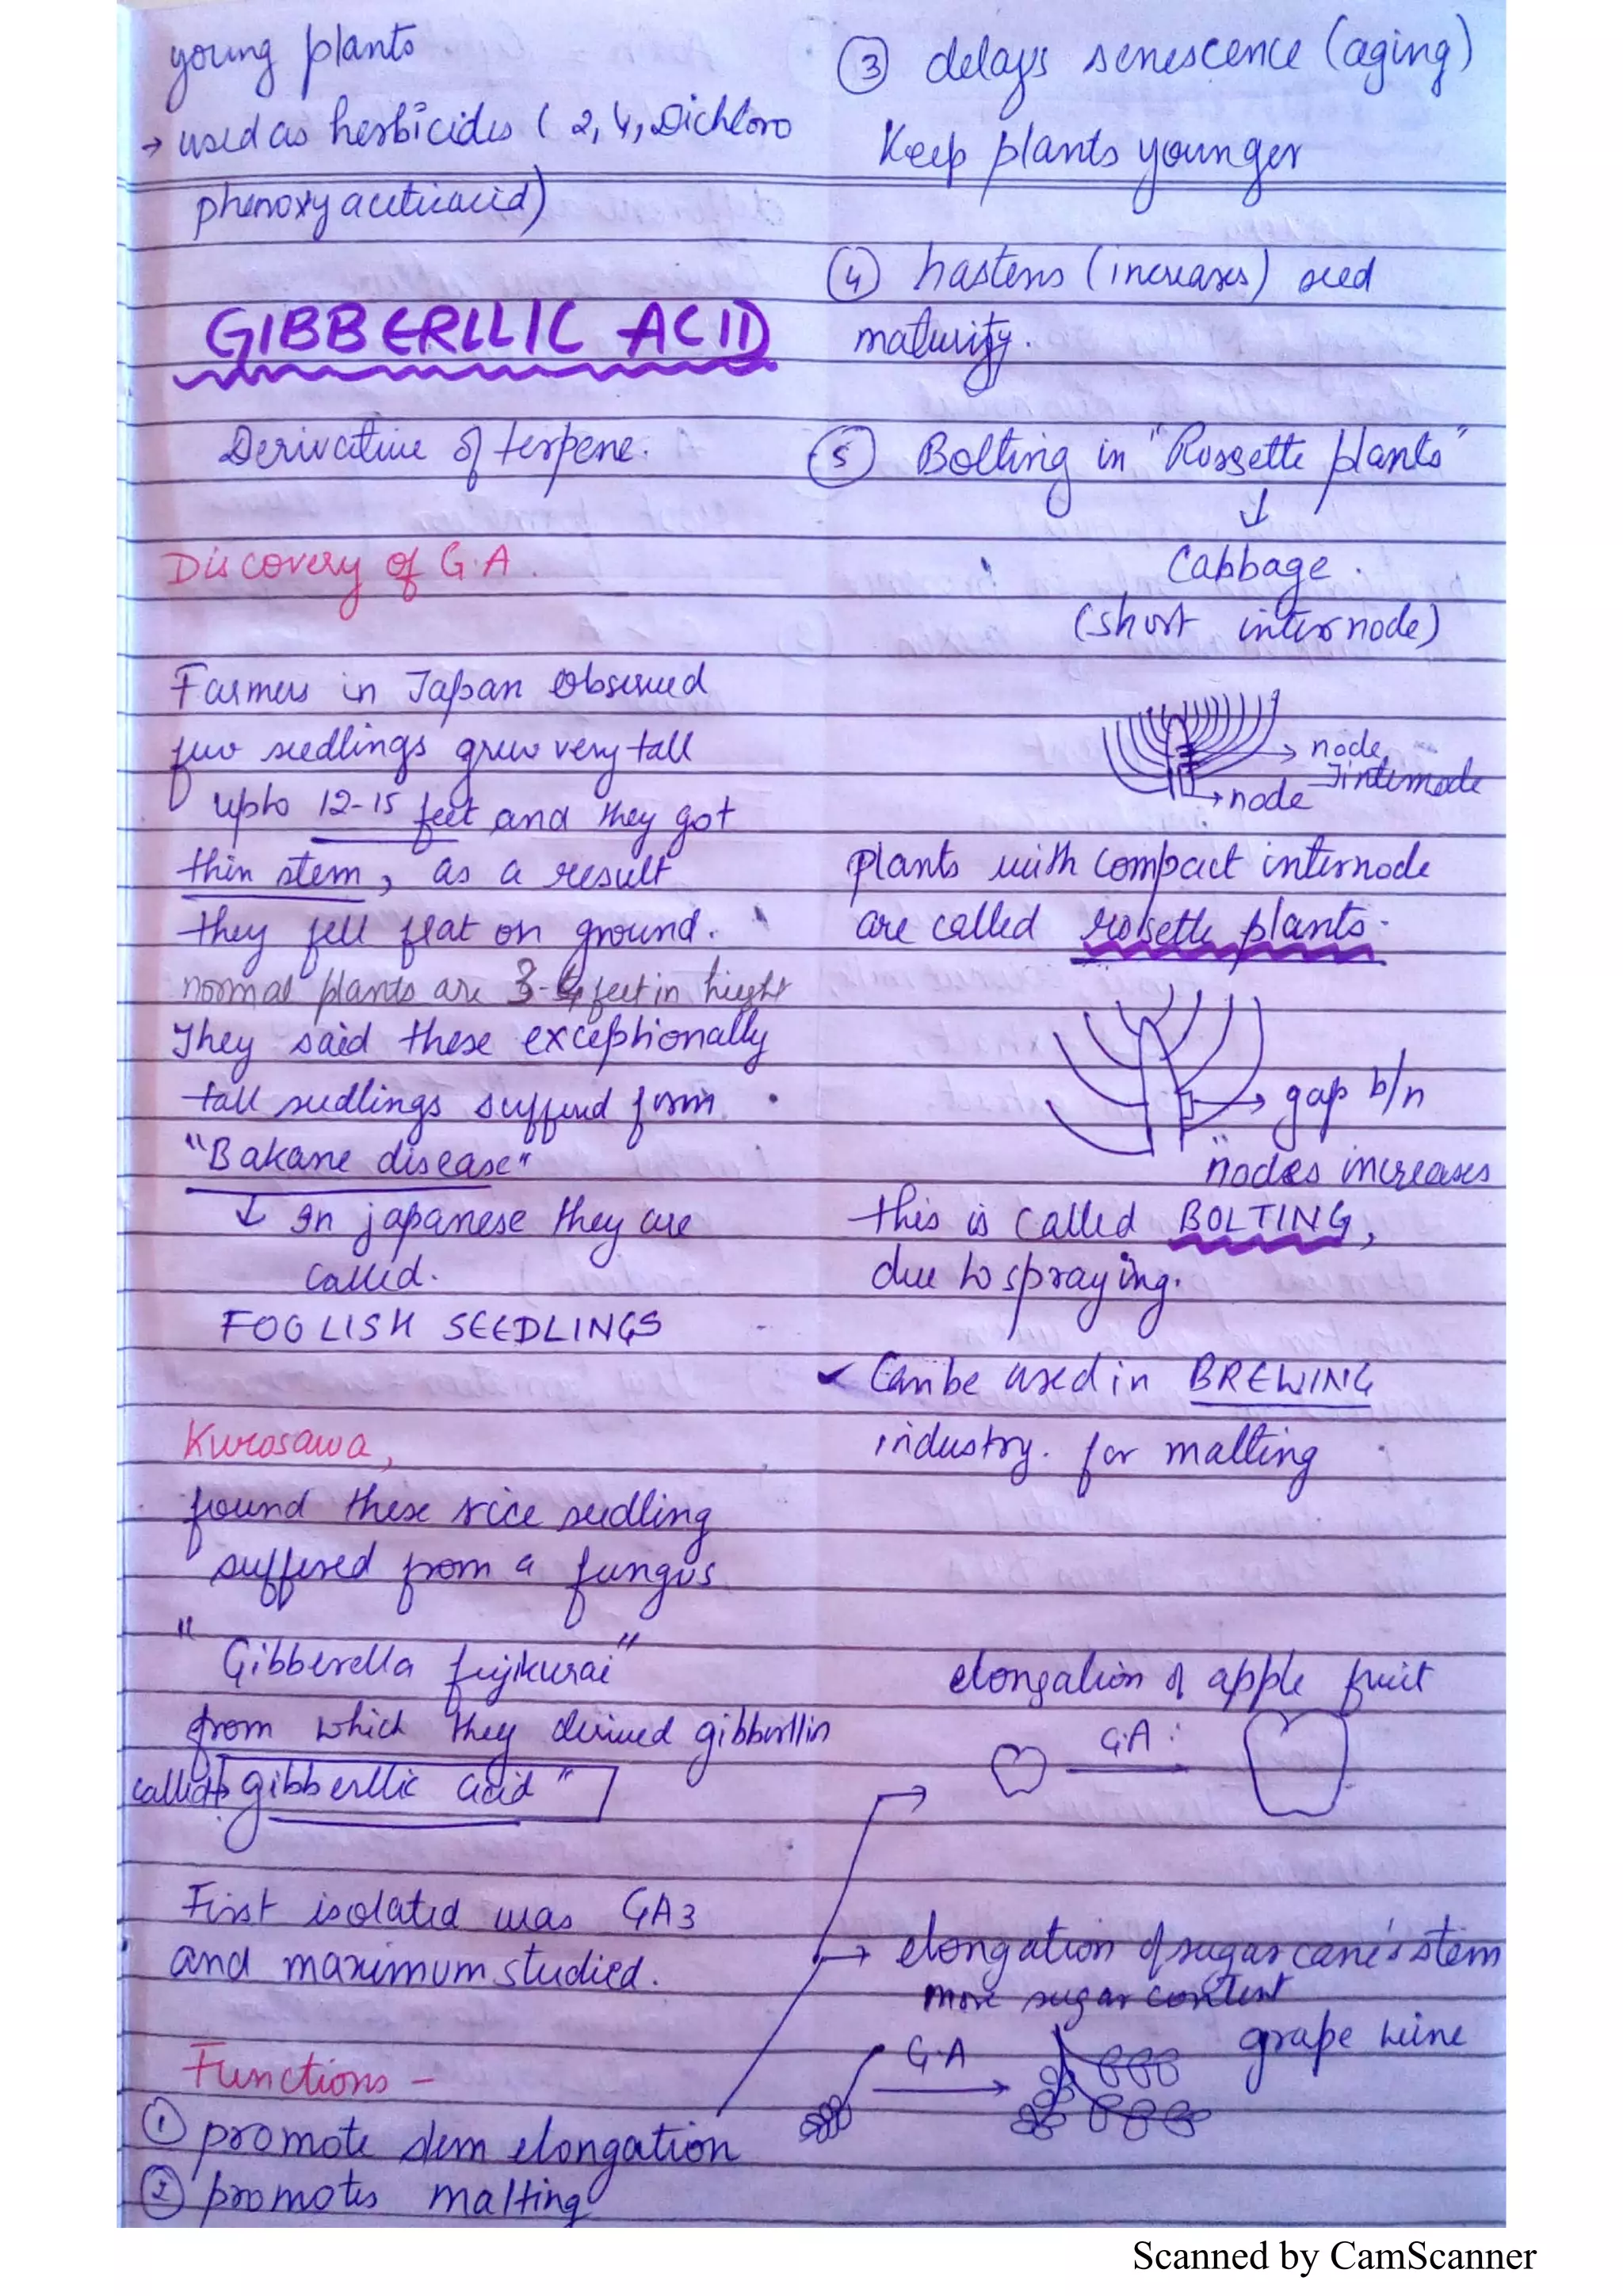 young plants
→ used as herbicides ( 2, 4, Dichloro
phenoxy aceticacid)
GIBBERLLIC ACID
Derivative of terpene.
Discovery of G.A.
Farmers in Japan observed
few seedlings grew very tall
upto 12-15 feet and they got
thin stem, as a result
they fell flat on ground.
normal plants are 3-4 feet in hight
They said these exceptionally
tall sudlings suffered form
"Bakane disease"
↓ In japanese they are
called.
FOOLISH SEEDLINGS
Kurosawa,
found these rice seedling
suffered from a fungus
"Gibberella fujikurai"
from which they derived gibberllin
called gibberllic acid"
First isolated was GA3
and maximum studied.
Functions -
① promote stem elongation
② promotes malting
③ delays senescence (aging)
Keep plants younger
④ hastens (increases) seed
maturity.
⑤ Bolting in "Rossette plants"
↓
Cabbage.
(short internode)
→ node
internode
→ node
plants with compact internode
are called rosette plants.
→ gap b/n
nodes increases
this is called BOLTING,
due to spraying.
✓ Can be used in BREWING
industry. for malting
elongation of apple fruit
G.A.
→ elongation of sugarcane's stem
more sugar content
G.A
grape wine
Scanned by CamScanner